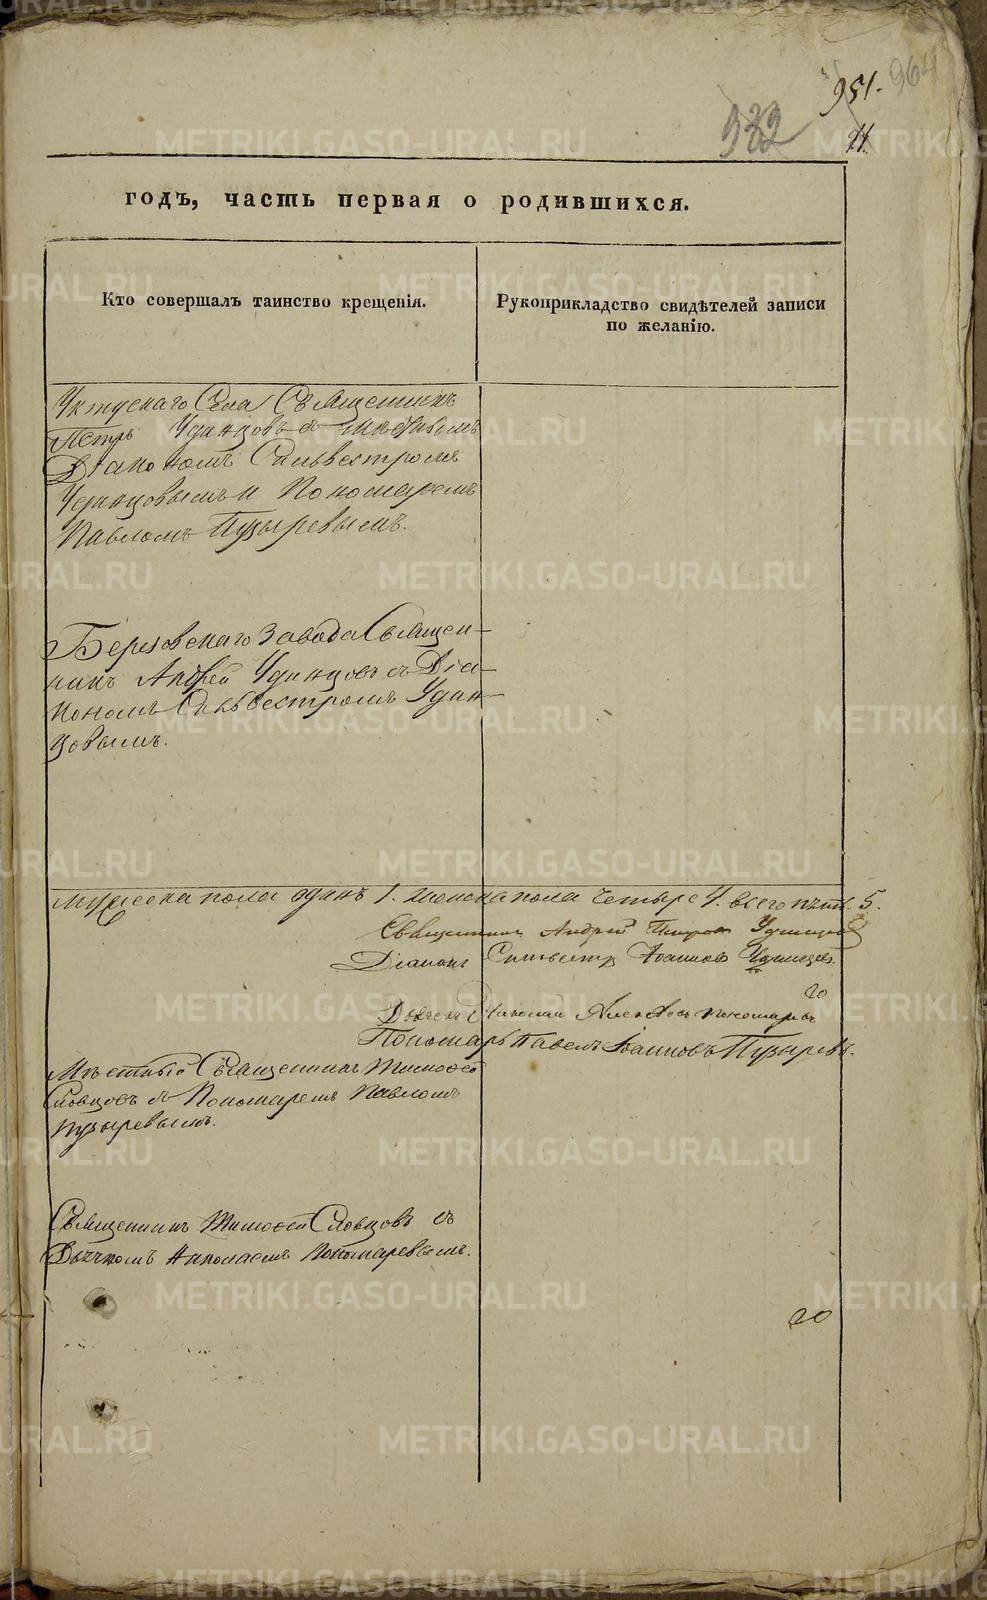 951.
964
932
21.
годъ, часть первая о родившихся.
Кто совершалъ таинство крещенія.
Рукоприкладство свидѣтелей записи
по желанію.
Уктускаго Села Священникъ
Петръ Удинцовъ съ мѣстнымъ
Діакономъ Сильвестромъ
Удинцовымъ и Пономаремъ
Павломъ Пузыревымъ.
Березовскаго Завода Священ-
никъ Андрей Удинцовъ съ Діа-
кономъ Сильвестромъ Удин-
цовымъ.
Мужеска пола одинъ 1. женска пола четыре 4. всего пять 5.
Священникъ Андрей Петровъ Удинцовъ
Діаконъ Сильвестръ Іоанновъ Удинцевъ.
20
Дьячекъ Николай Пономаревъ
Пономарь Павелъ Іоанновъ Пузыревъ.
Мѣстный Священникъ Тимоѳей
Словцовъ съ Пономаремъ Павломъ
Пузыревымъ.
Священникъ Тимоѳей Словцовъ съ
Дьячкомъ Николаемъ Пономаревымъ.
20
METRIKI.GASO-URAL.RU